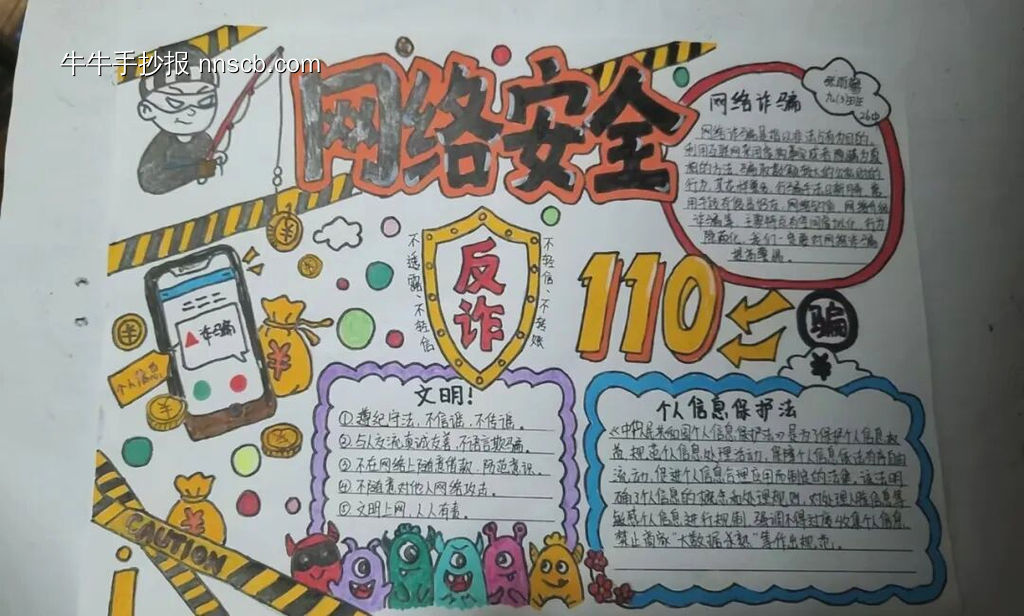 牛牛手抄报 nnscb.com
网络安全
九(3)班
26中
网络诈骗
网络诈骗是指以非法占有为目的,
利用互联网采用虚构事实或者隐瞒真
相的方法,骗取数额较大的公私财物的
行为。
用手段有假冒好友、网络钓鱼、网络
诈骗等,主要特点为空间虚拟化、行为
隐蔽化,我们一定要对网络诈骗
提高警惕。
不透露、不轻信
反诈
不轻信、不转账
110
骗
¥
诈骗
个人信息
¥
¥
CAUTION
文明!
①遵纪守法,不信谣,不传谣。
②与人交流真诚友善,不语言欺骗。
③不在网络上随意借款,防范意识。
④不随意对他人网络攻击。
⑤文明上网,人人有责。
个人信息保护法
《中华人民共和国个人信息保护法》是为了保护个人信息权
益,规范个人信息处理活动,保障个人信息依法有序自由
流动,促进个人信息合理利用而制定的法律,该法明
确了个人信息的概念和处理规则,对处理人脸信息等
敏感个人信息进行规制,强调不得过度收集个人信息,
禁止商家"大数据杀熟"等作出规范。